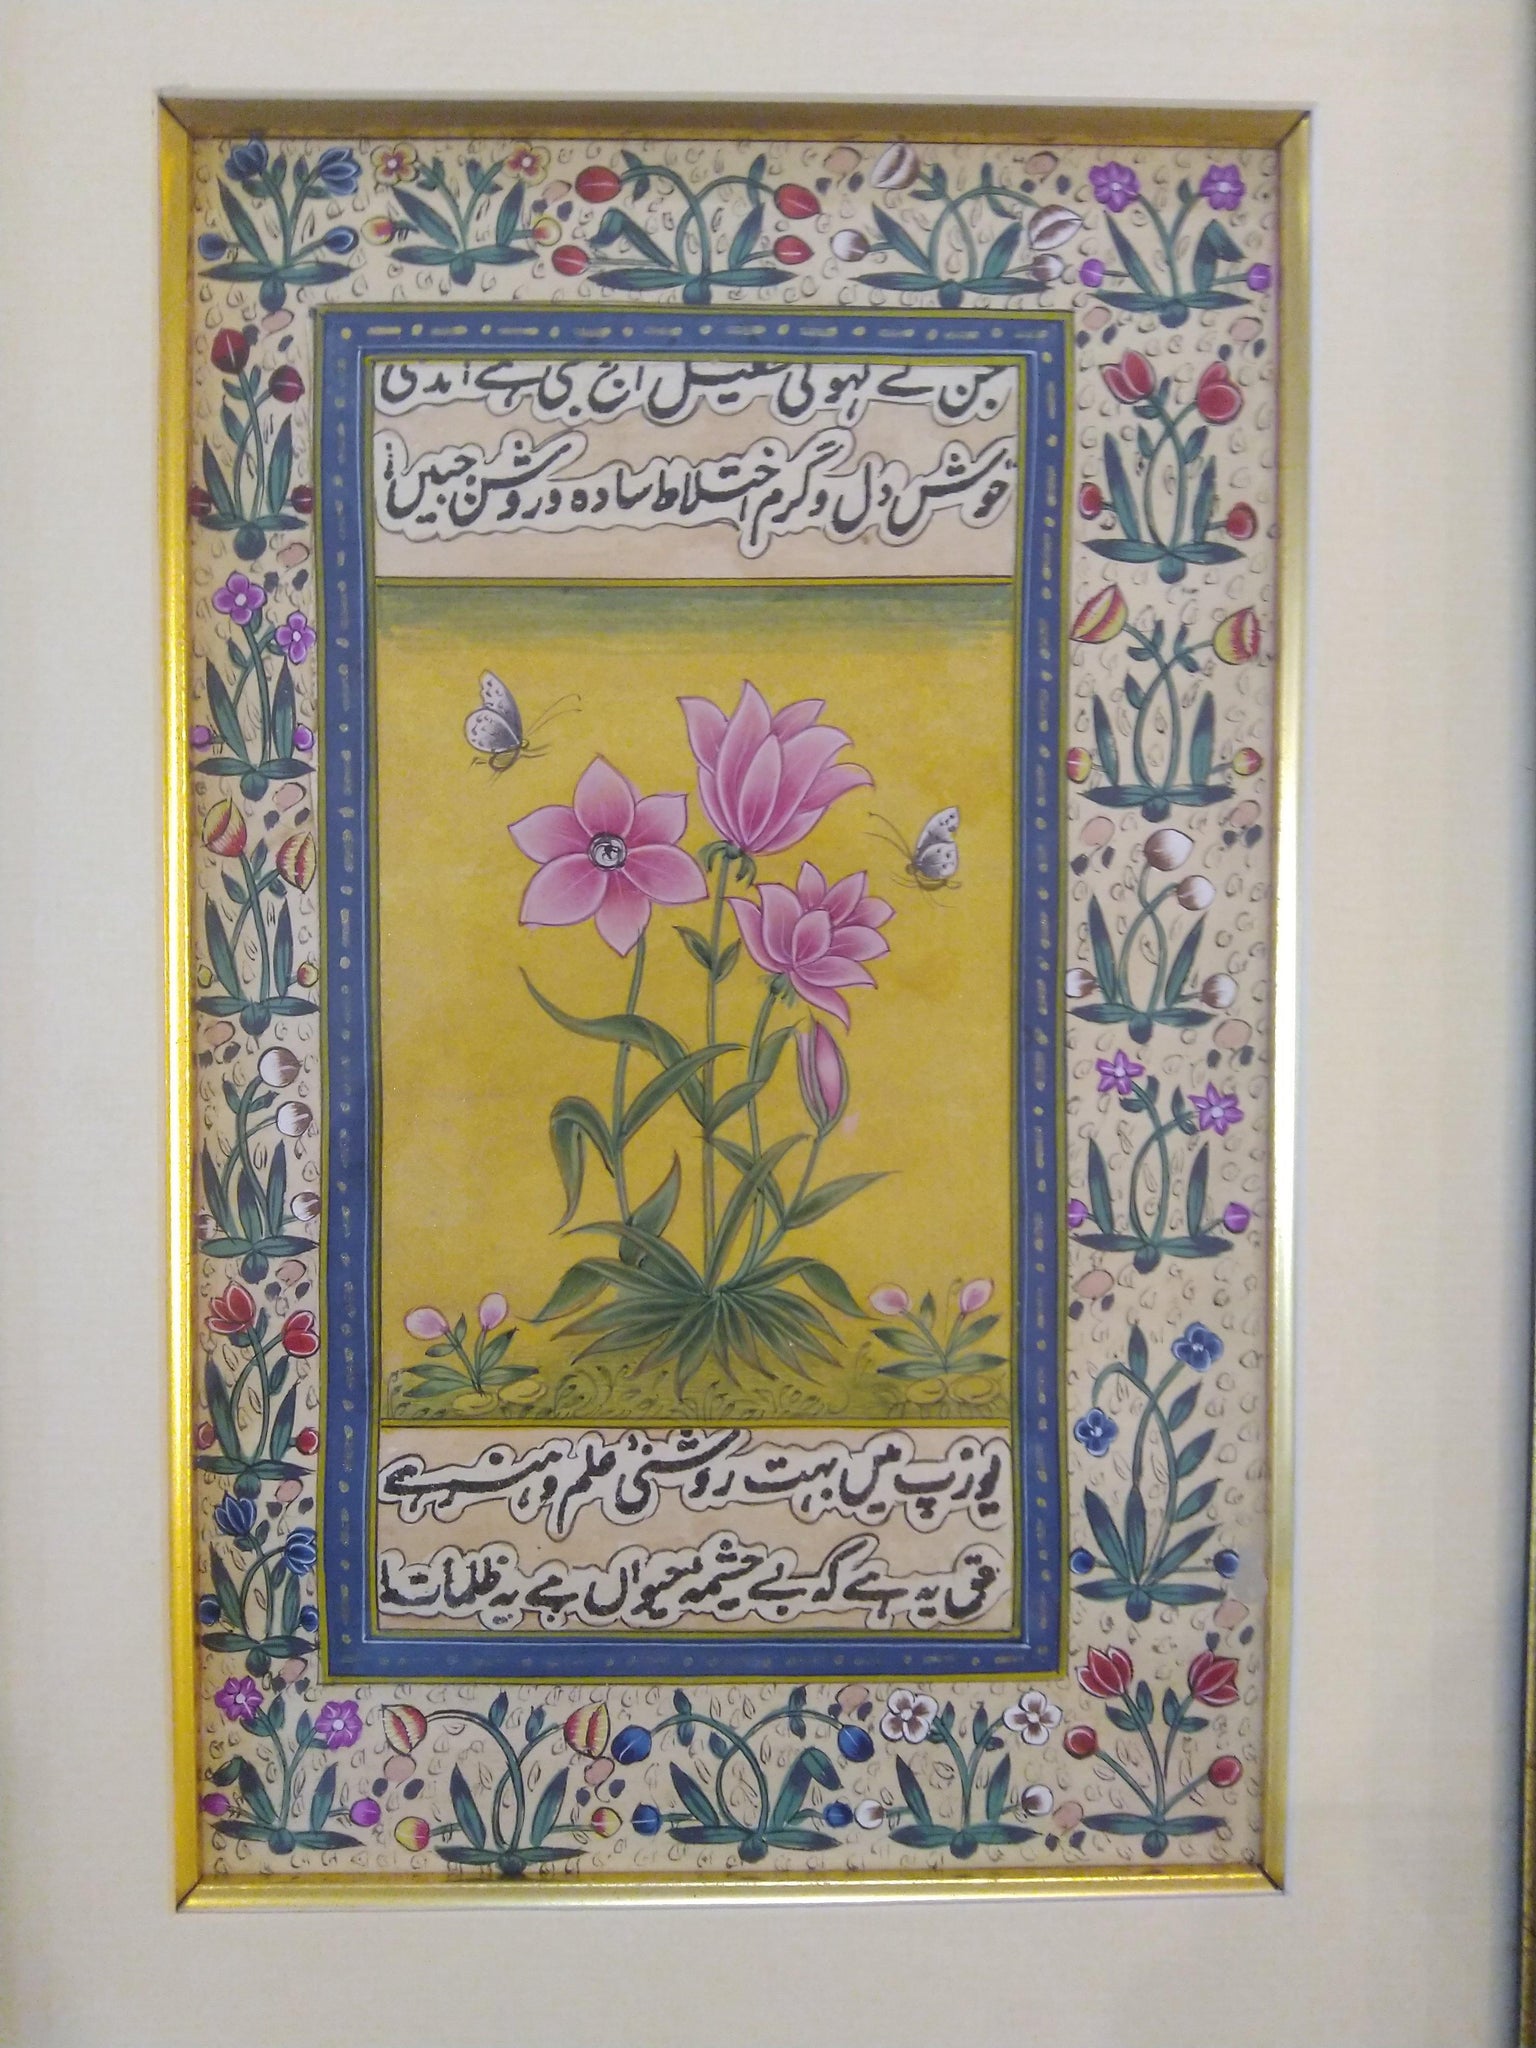 جن کے لہو کی طفیل آج بھی ہے اندلسی
خوش دل و گرم اختلاط سادہ و روشن جبیں!
یورپ میں بہت روشنئ علم و ہنر ہے
حق یہ ہے کہ بے چشمہ حیواں ہے یہ ظلمات!